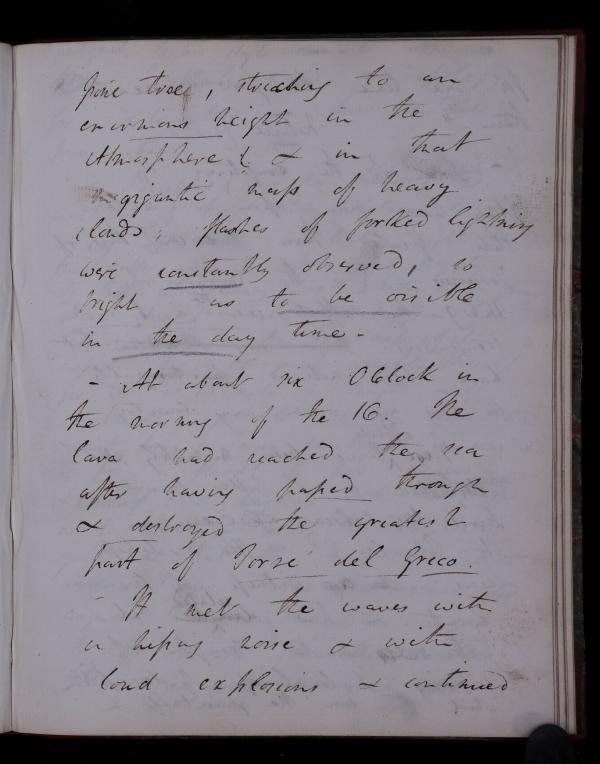 pine tree, streching to an
enormous height in the
Atmosphere & in that
gigantic mass of heavy
clouds; flashes of forked lightning
were constantly observed, so
bright as to be visible
in the day time -
- At about six OClock in
the morning of the 16. The
lava had reached the sea
after having passed through
& destroyed the greatest
part of Torre del Greco.
- It met the waves with
a hissing noise & with
loud explosions & continued